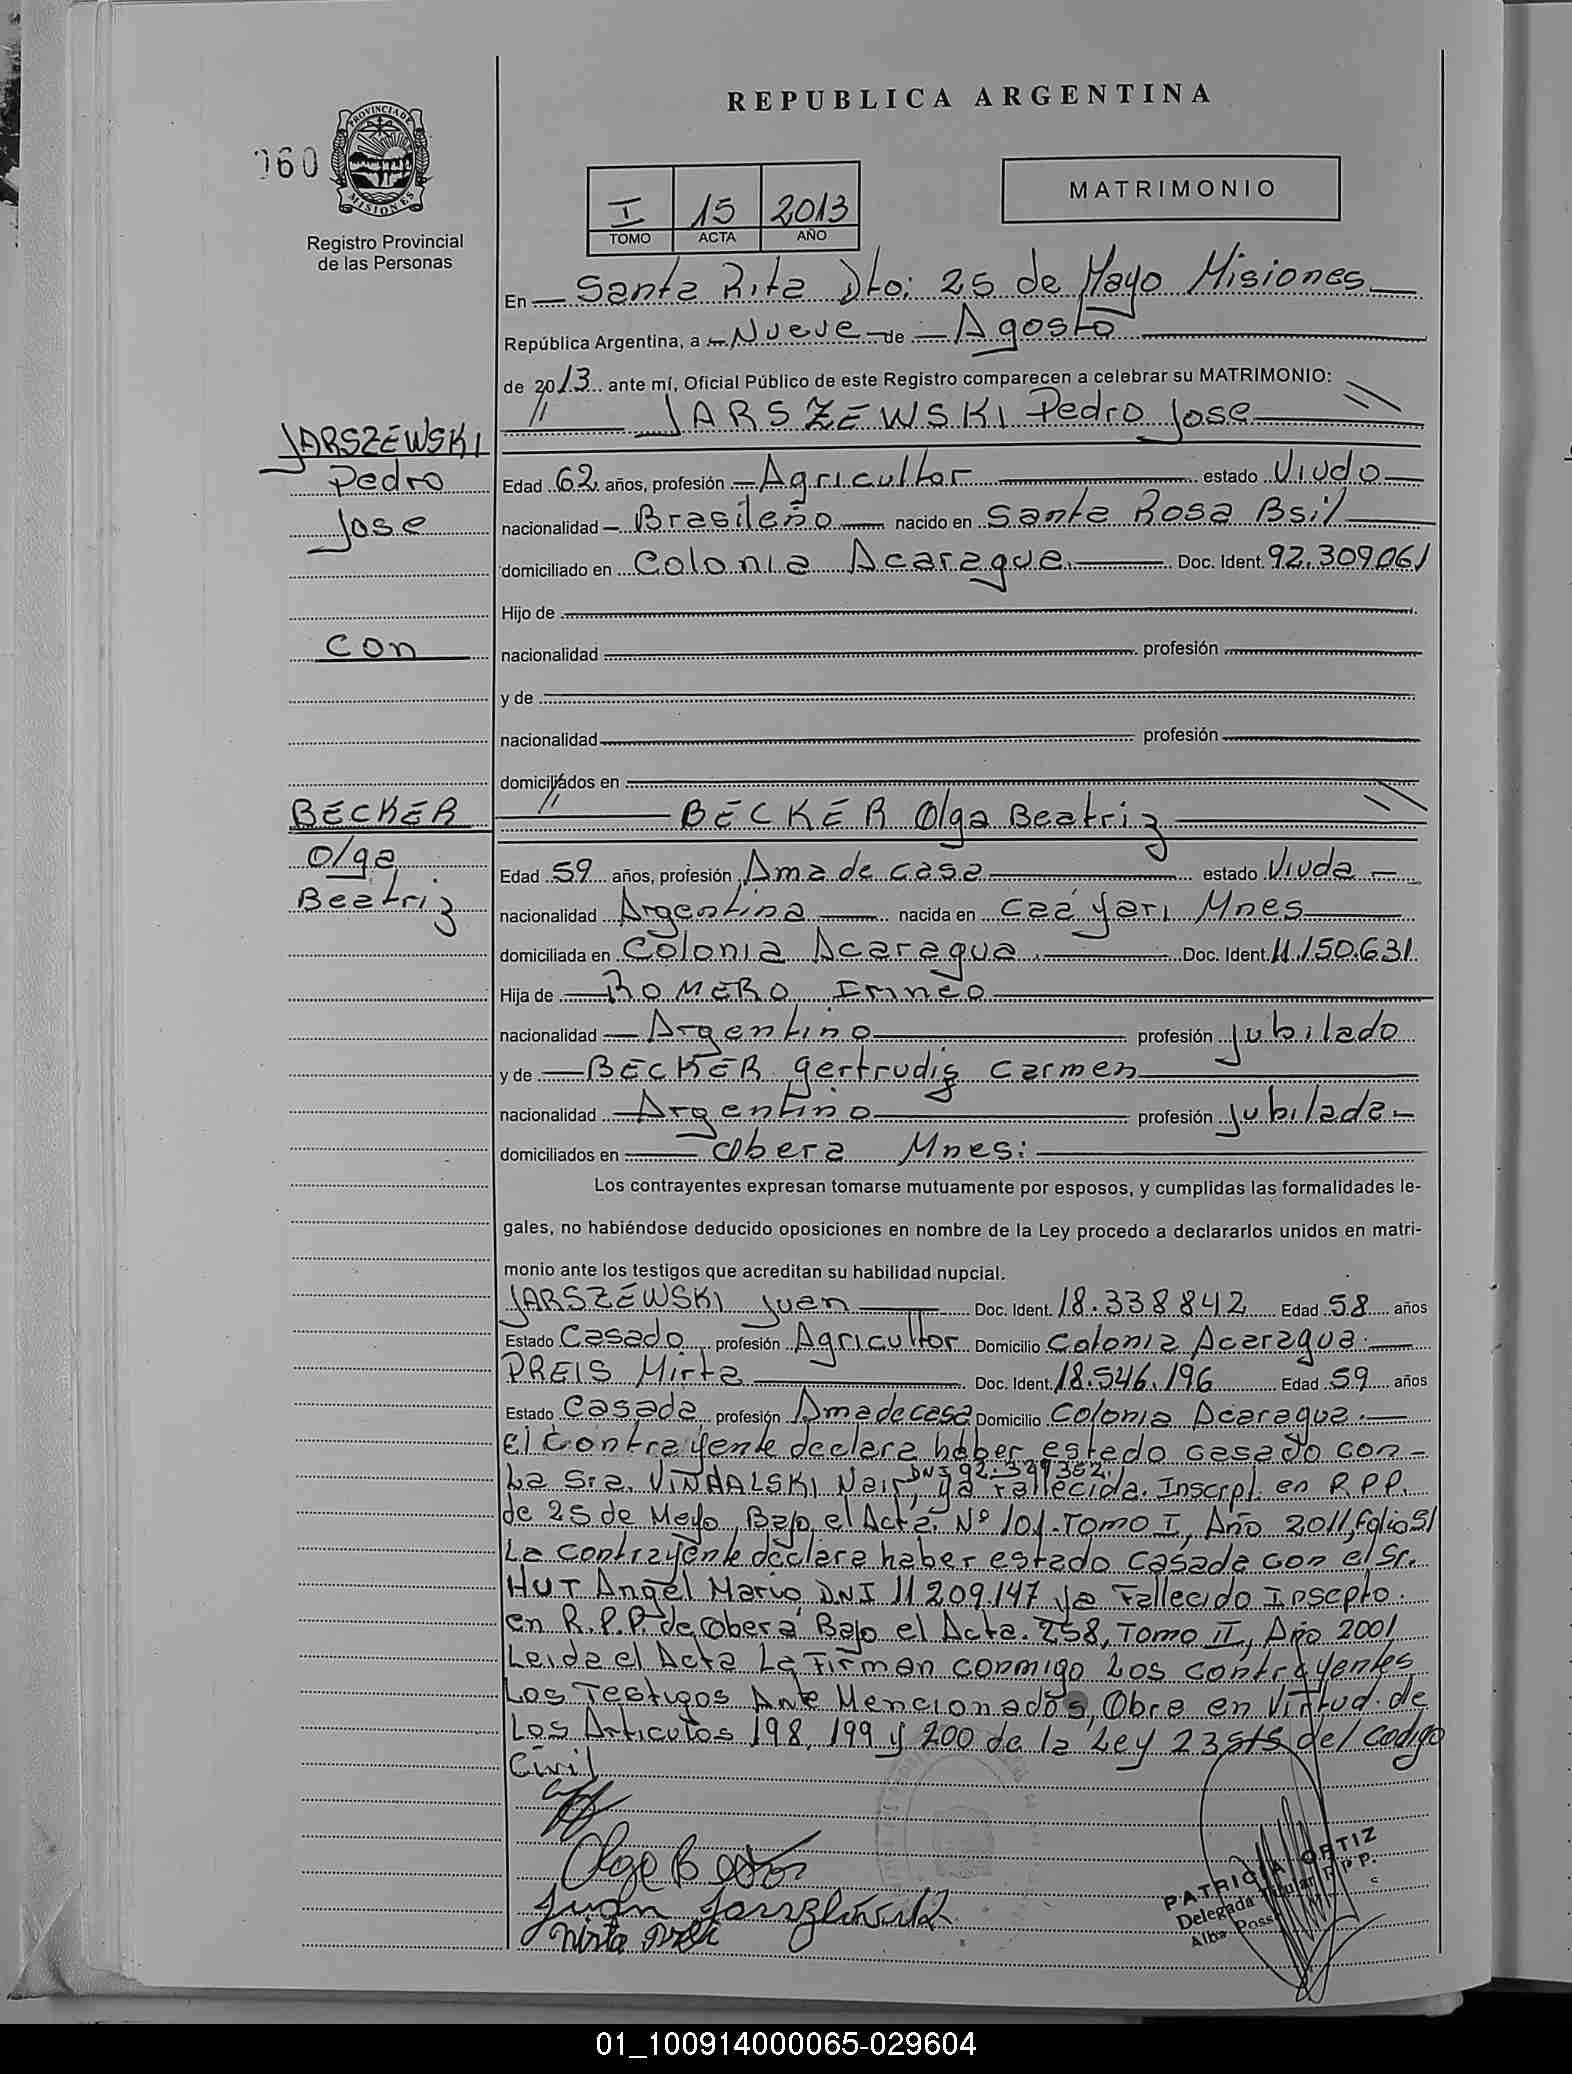 REPUBLICA ARGENTINA
060
PROVINCIA DE
MISIONES
Registro Provincial
de las Personas
I 15 2013
TOMO ACTA AÑO
MATRIMONIO
En Santa Rita Dto: 25 de Mayo Misiones
República Argentina, a Nueve de Agosto
de 2013 ante mí, Oficial Público de este Registro comparecen a celebrar su MATRIMONIO:
JARSZEWSKI Pedro Jose
JARSZEWSKI
Pedro
Jose
Edad 62 años, profesión Agricultor estado Viudo
nacionalidad Brasileño nacido en Santa Rosa Bsil
domiciliado en Colonia Acaragua Doc. Ident. 92.309061
Hijo de
con
nacionalidad profesión
y de
nacionalidad profesión
domiciliados en
BECKER Olga Beatriz
BECKER
Olga
Beatriz
Edad 59 años, profesión Ama de casa estado Viuda
nacionalidad Argentina nacida en Caá yari Mnes
domiciliada en Colonia Acaragua Doc. Ident. 11.150.631
Hija de ROMERO Irineo
nacionalidad Argentino profesión Jubilado
y de BECKER Gertrudis Carmen
nacionalidad Argentino profesión Jubilada
domiciliados en Obera Mnes:
Los contrayentes expresan tomarse mutuamente por esposos, y cumplidas las formalidades le-
gales, no habiéndose deducido oposiciones en nombre de la Ley procedo a declararlos unidos en matri-
monio ante los testigos que acreditan su habilidad nupcial.
JARSZEWSKI Juan Doc. Ident. 18.338842 Edad 58 años
Estado Casado profesión Agricultor Domicilio Colonia Acaragua
PREIS Mirta Doc. Ident. 18.546.196 Edad 59 años
Estado Casada profesión Ama de casa Domicilio Colonia Acaragua
El Contrayente declara haber estado casado con
DNI 92.329352
La Sra. VINHALSKI Nair, ya fallecida. Inscrpt. en R.P.P.
de 25 de Mayo, Bajo el Acta Nº 101. Tomo I, Año 2011, folio 51
La contrayente declara haber estado casada con el Sr.
HUT Angel Mario DNI 11209.147 ya Fallecido Inscpto.
en R.P.P. de Obera Bajo el Acta. 258, Tomo II, Año 2001
Leida el Acta La Firman conmigo Los contrayentes
Los Testigos Ante Mencionados, Obra en Virtud de
Los Articulos 198, 199 y 200 de la Ley 23515 del Codigo
Civil
Olga Becker
Juan Jarszewski
Mirta Preis
PATRICIA ORTIZ
Delegada Titular R.P.P.
Alba Posse
01_100914000065-029604